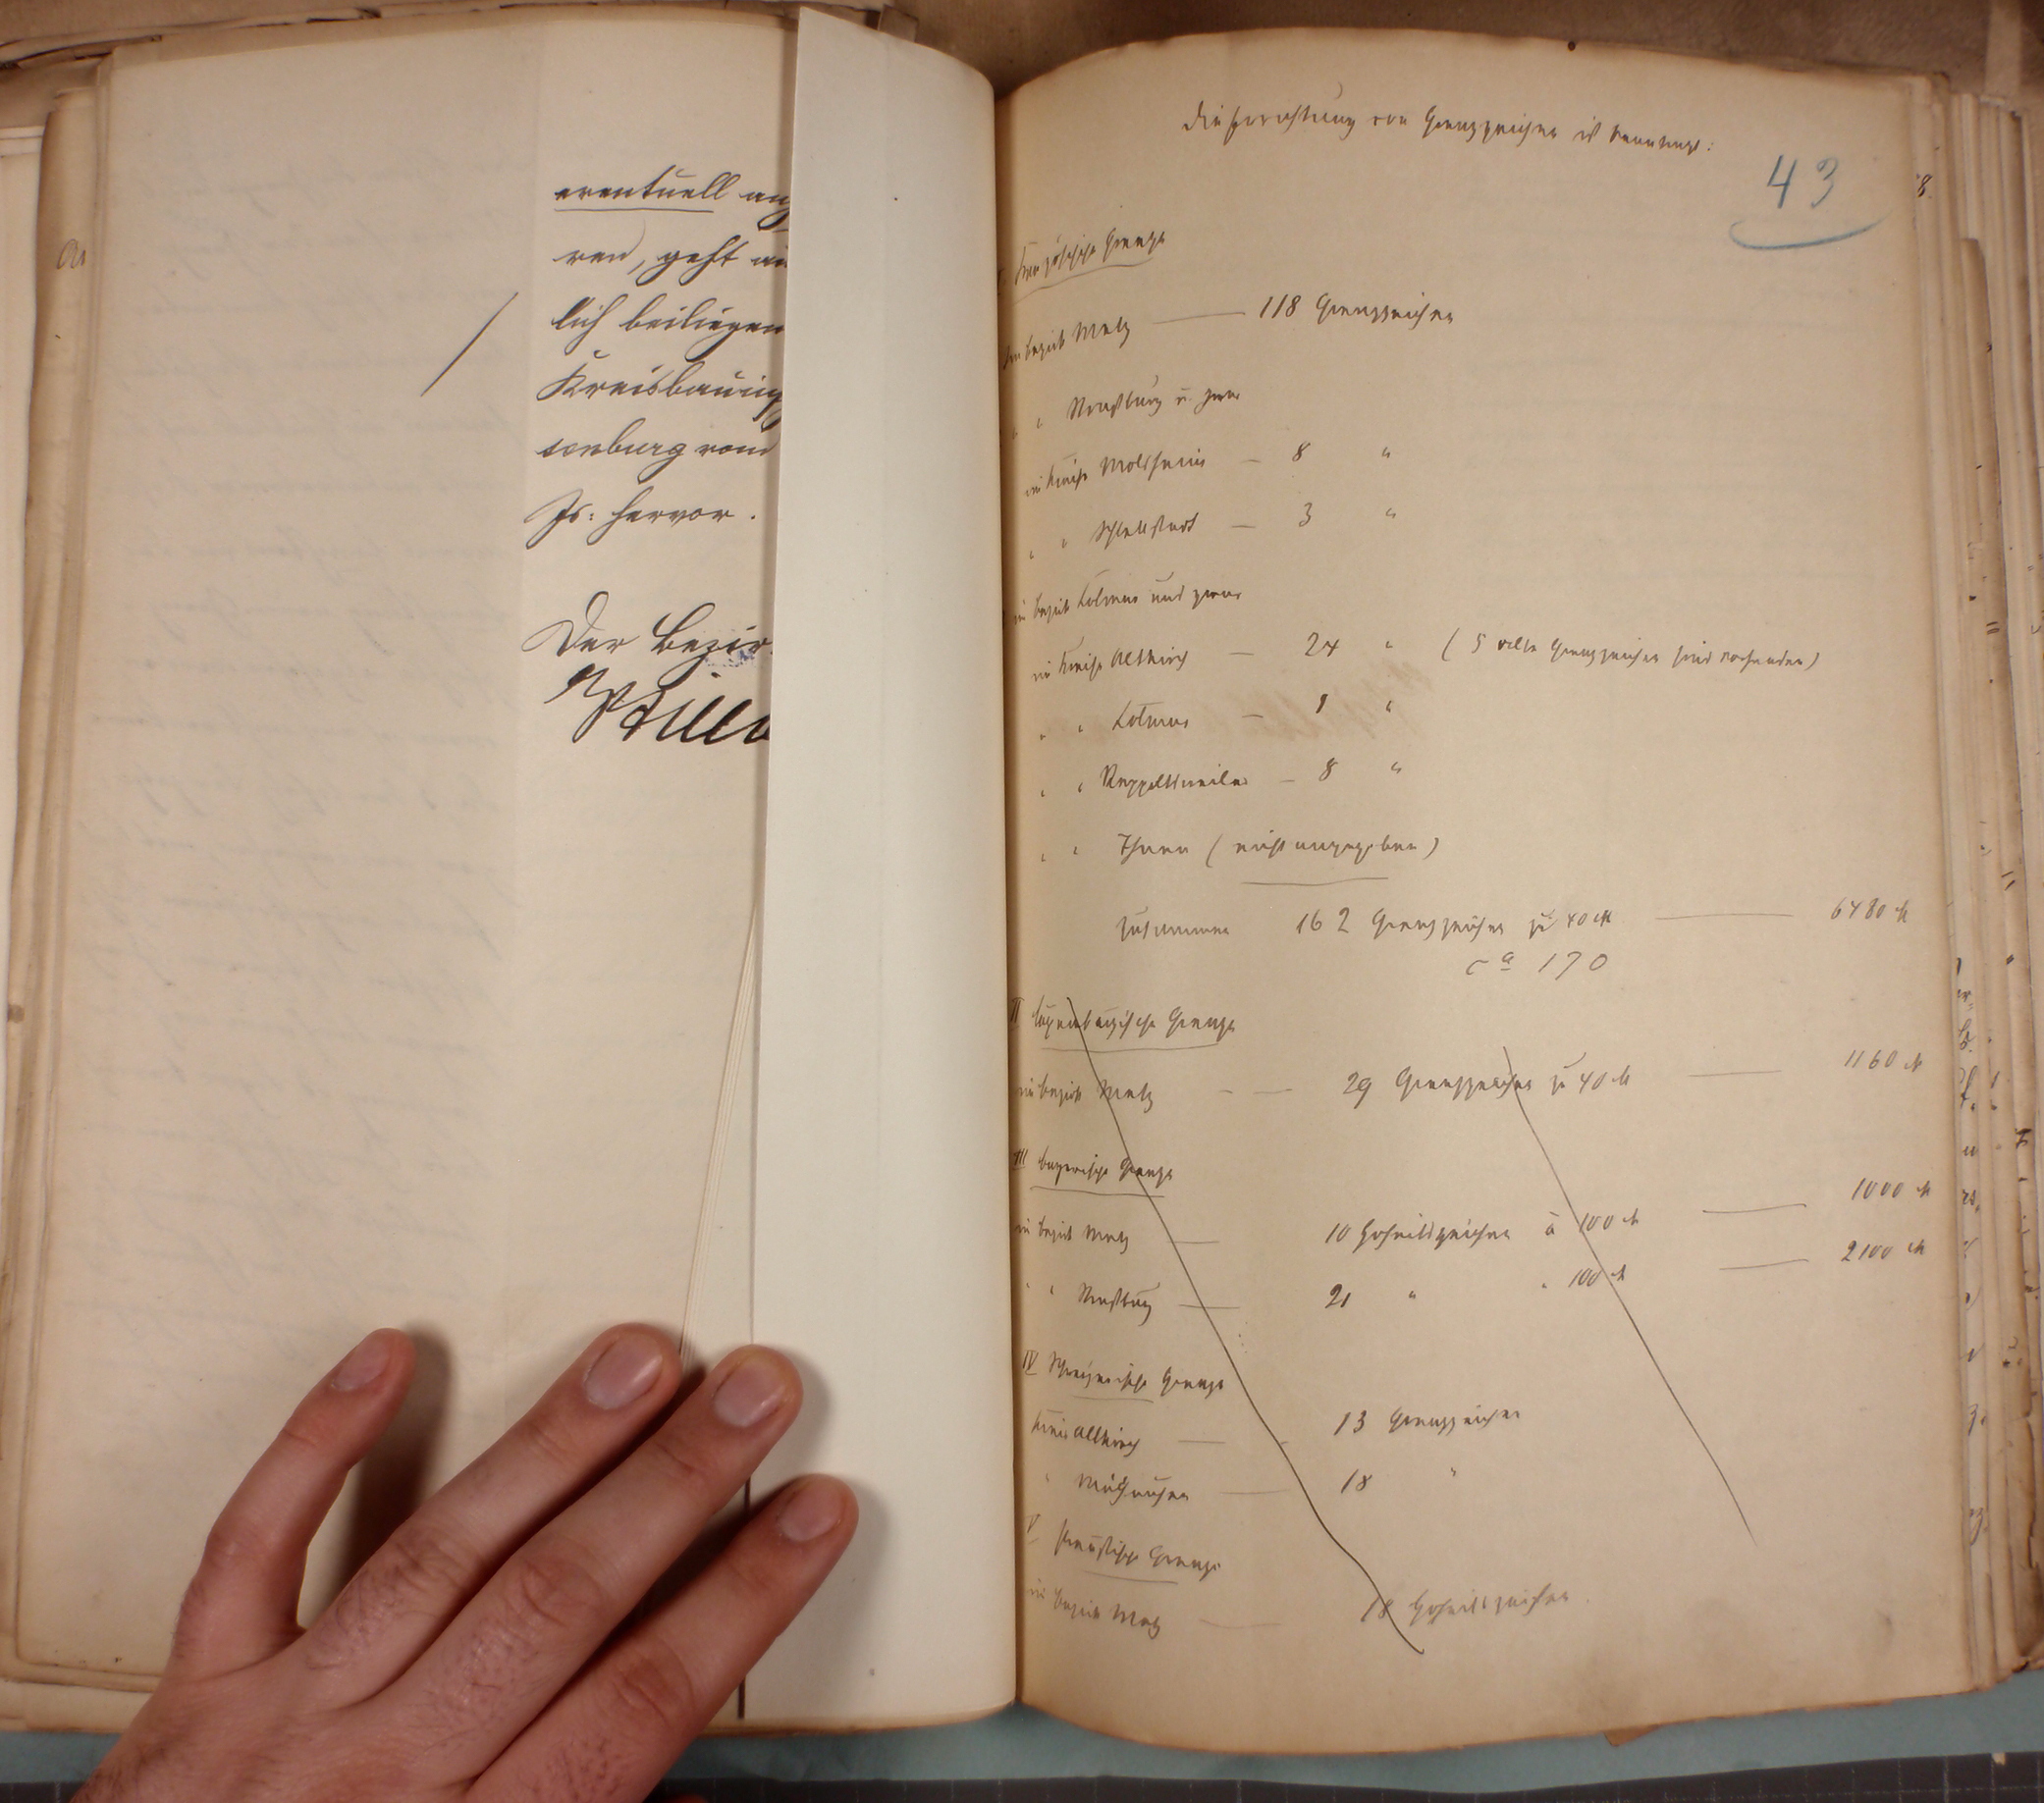 eventuell
ren, geht
lich beiliegen
Kreisbauins
senburg vom
Js: hervor.
Der Bezir
43
Die Errichtung von Grenzzeichen ist beantragt:
I Französische Grenze
im Bezirk Metz — 118 Grenzzeichen
" " Straßburg u. zwar
im Kreise Molsheim — 8 "
" " Schlettstadt — 3 "
im Bezirk Colmar und zwar
im Kreise Altkirch — 24 " (5 alte Grenzzeichen sind vorhanden)
" " Colmar — 1 "
" " Rappoltsweiler — 8 "
" " Thann (nicht angegeben)
Zusammen 162 Grenzzeichen zu 40 M — 6480 M
ca 170
II Luxemburgische Grenze
im Bezirk Metz — 29 Grenzzeichen zu 40 M — 1160 M
III bayerische Grenze
im Bezirk Metz — 10 Hoheitszeichen à 100 M — 1000 M
" " Straßburg — 21 " " 100 M — 2100 M
IV Schweizerische Grenze
Kreis Altkirch — 13 Grenzzeichen
" Mülhausen — 18 "
V Preußische Grenze
im Bezirk Metz — 18 Hoheitszeichen